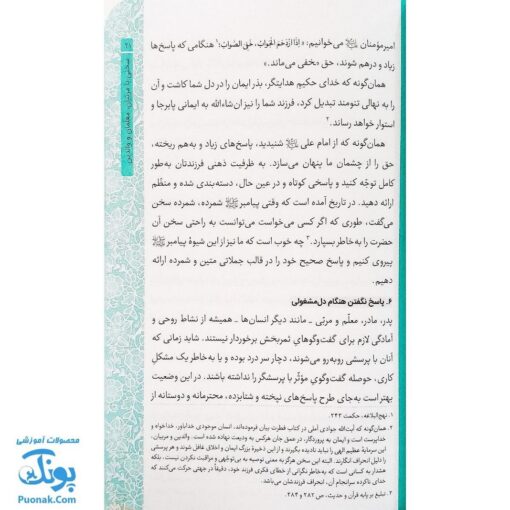 ۲۹
سخنی با مربیان، معلمان و والدین
امیرمؤمنان ﷺ می‌خوانیم: «إِذَا ازْدَحَمَ الْجَوابُ، خَفِيَ الصَّوابُ؛¹ هنگامی که پاسخ‌ها
زیاد و درهم شوند، حق مخفی می‌ماند.»
همان‌گونه که خدای حکیمِ هدایتگر، بذر ایمان را در دل شما کاشت و آن
را به نهالی تنومند تبدیل کرد، فرزند شما را نیز ان‌شاءالله به ایمانی پابرجا و
استوار خواهد رساند.۲
همان‌گونه که از امام علی ﷺ شنیدید، پاسخ‌های زیاد و به‌هم ریخته،
حق را از چشمان ما پنهان می‌سازد. به ظرفیت ذهنی فرزندتان به‌طور
کامل توجّه کنید و پاسخی کوتاه و در عین حال، دسته‌بندی شده و منظّم
ارائه دهید. در تاریخ آمده است که وقتی پیامبر ﷺ شمرده، شمرده سخن
می‌گفت، طوری که اگر کسی می‌خواست می‌توانست به راحتی سخن آن
حضرت را به‌خاطر بسپارد.۳ چه خوب است که ما نیز از این شیوهٔ پیامبر ﷺ
پیروی کنیم و پاسخ صحیح خود را در قالب جملاتی متین و شمرده ارائه
دهیم.
۶. پاسخ نگفتن هنگام دل‌مشغولی
پدر، مادر، معلّم و مربّی ـ مانند دیگر انسان‌ها ـ همیشه از نشاط روحی و
آمادگی لازم برای گفت‌وگوهایِ ثمربخش برخوردار نیستند. شاید زمانی که
آنان با پرسشی روبه‌رو می‌شوند، دچار سر درد بوده و یا به‌خاطر یک مشکلِ
کاری، حوصله گفت‌وگویِ مؤثّر با پرسشگر را نداشته باشند. در این وضعیت
بهتر است به‌جای طرح پاسخ‌های نپخته و شتابزده، محترمانه و دوستانه از
۱. نهج‌البلاغه، حکمت ۲۴۳.
۲. همان‌گونه که آیت‌الله جوادی آملی در کتاب فطرت بیان فرموده‌اند، انسان موجودی خداباور، خداخواه و
خداپرست است و ایمان به پروردگار، در عمق جان هرکس به ودیعت نهاده شده است. والدین و مربیان،
این سرمایهٔ عظیم الهی را نباید نادیده بگیرند و از ذخیرهٔ بزرگ ایمان و اخلاق غافل شوند و هر پرسشی
را دلیل انحراف انگارند. البته این سخن هرگز به معنی توصیه به بی‌توجّهی و مراقبت نکردن نیست، بلکه
هشدار به کسانی است که به‌خاطر نگرانی از خطای فکری فرزند خود، دقیقاً در جهتی حرکت می‌کنند که
خدای ناکرده سرانجام آن، انحراف فرزندشان می‌باشد.
۳. تبلیغ بر پایه قرآن و حدیث، ص ۲۸۲ و ۲۸۴.
محصولات آموزشی
پونک
Puonak.Com